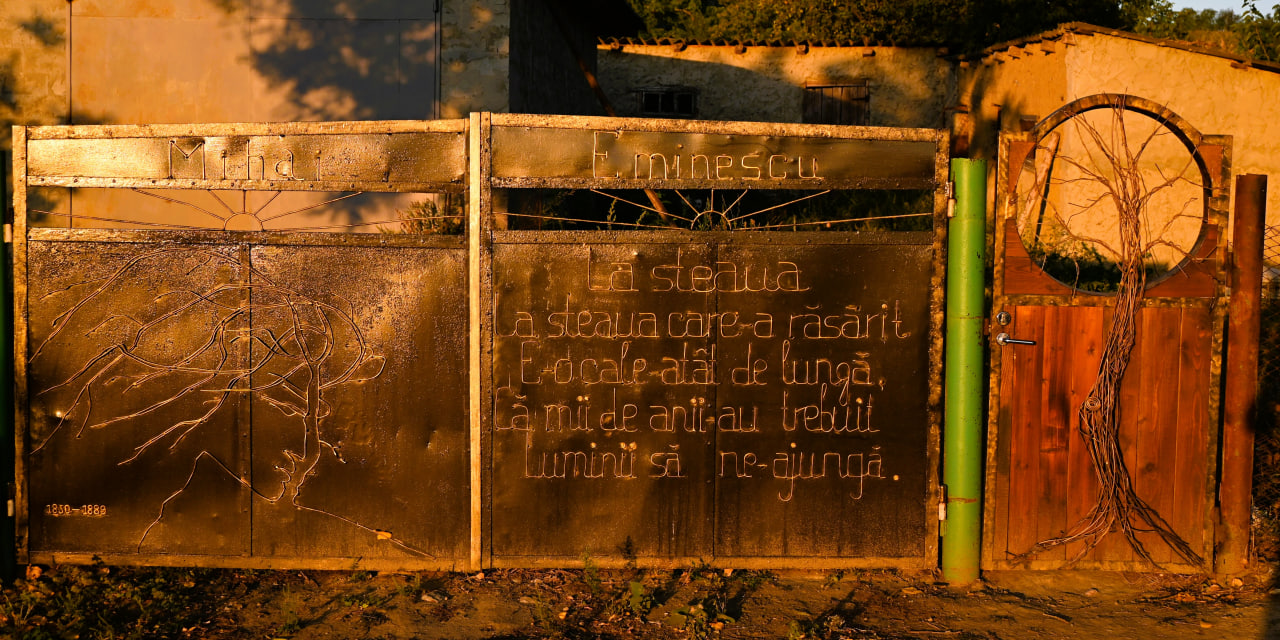 Mihai Eminescu
La steaua
La steaua care-a răsărit
E-o cale-atât de lungă,
Că mii de anii-au trebuit
Luminii să ne-ajungă.
1850-1889